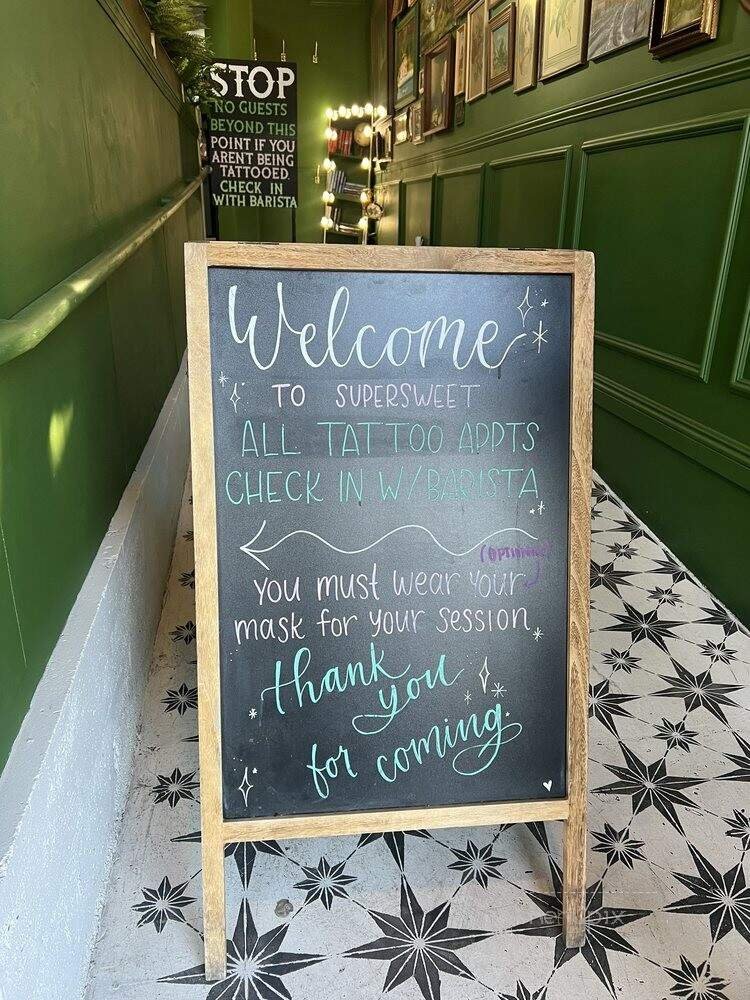 STOP
NO GUESTS
BEYOND THIS
POINT IF YOU
ARENT BEING
TATTOOED.
CHECK IN
WITH BARISTA
Welcome
TO SUPERSWEET
ALL TATTOO APPTS
CHECK IN W/BARISTA
(OPTIONAL)
you must wear your
mask for your session
thank
you
for coming